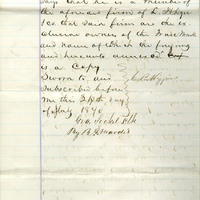 says that he is a member of
the aforesaid firm of L. Higgins
& Co that said firm are the ex
clusive owner of the Trade Mark
and name of which the forgoing
and hereunto annexed
is a Copy
Sworn to and
Subscribed before
me this 28th day
of July 1870
Geo. Clk
By